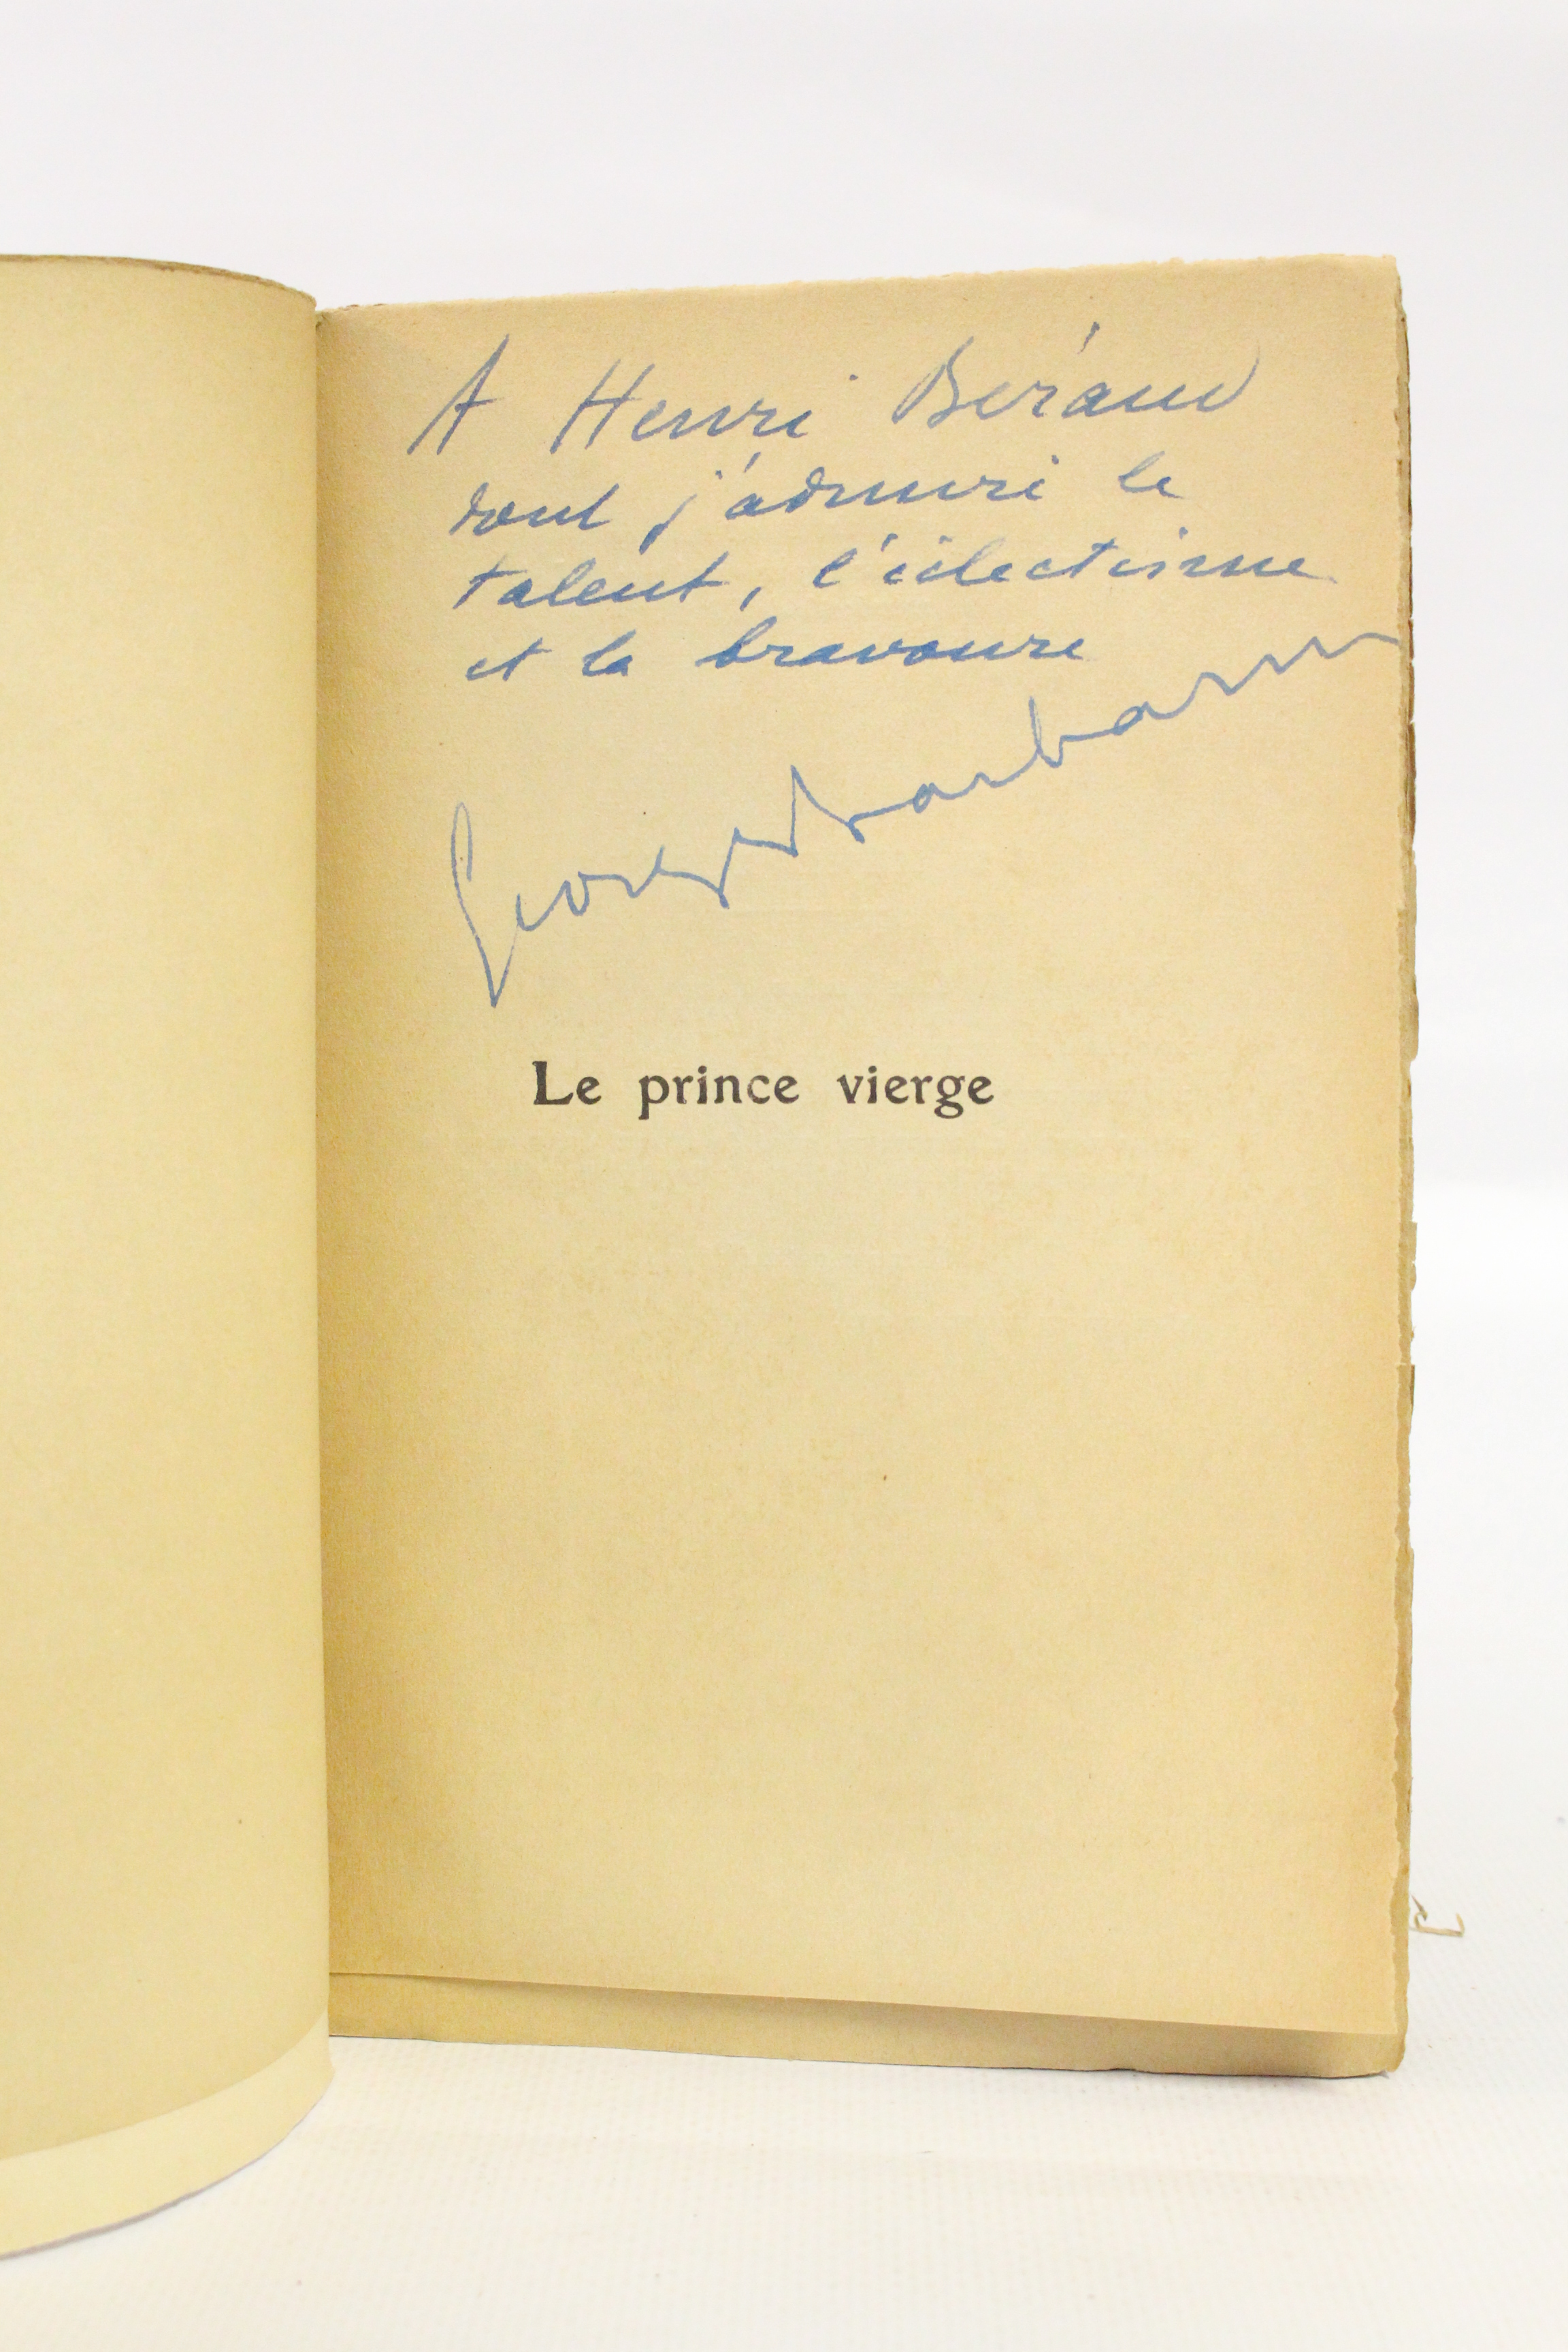 A Henri Béraud
dont j'admire le
talent, l'éclectisme
et la bravoure
Georges Barbarin
Le prince vierge